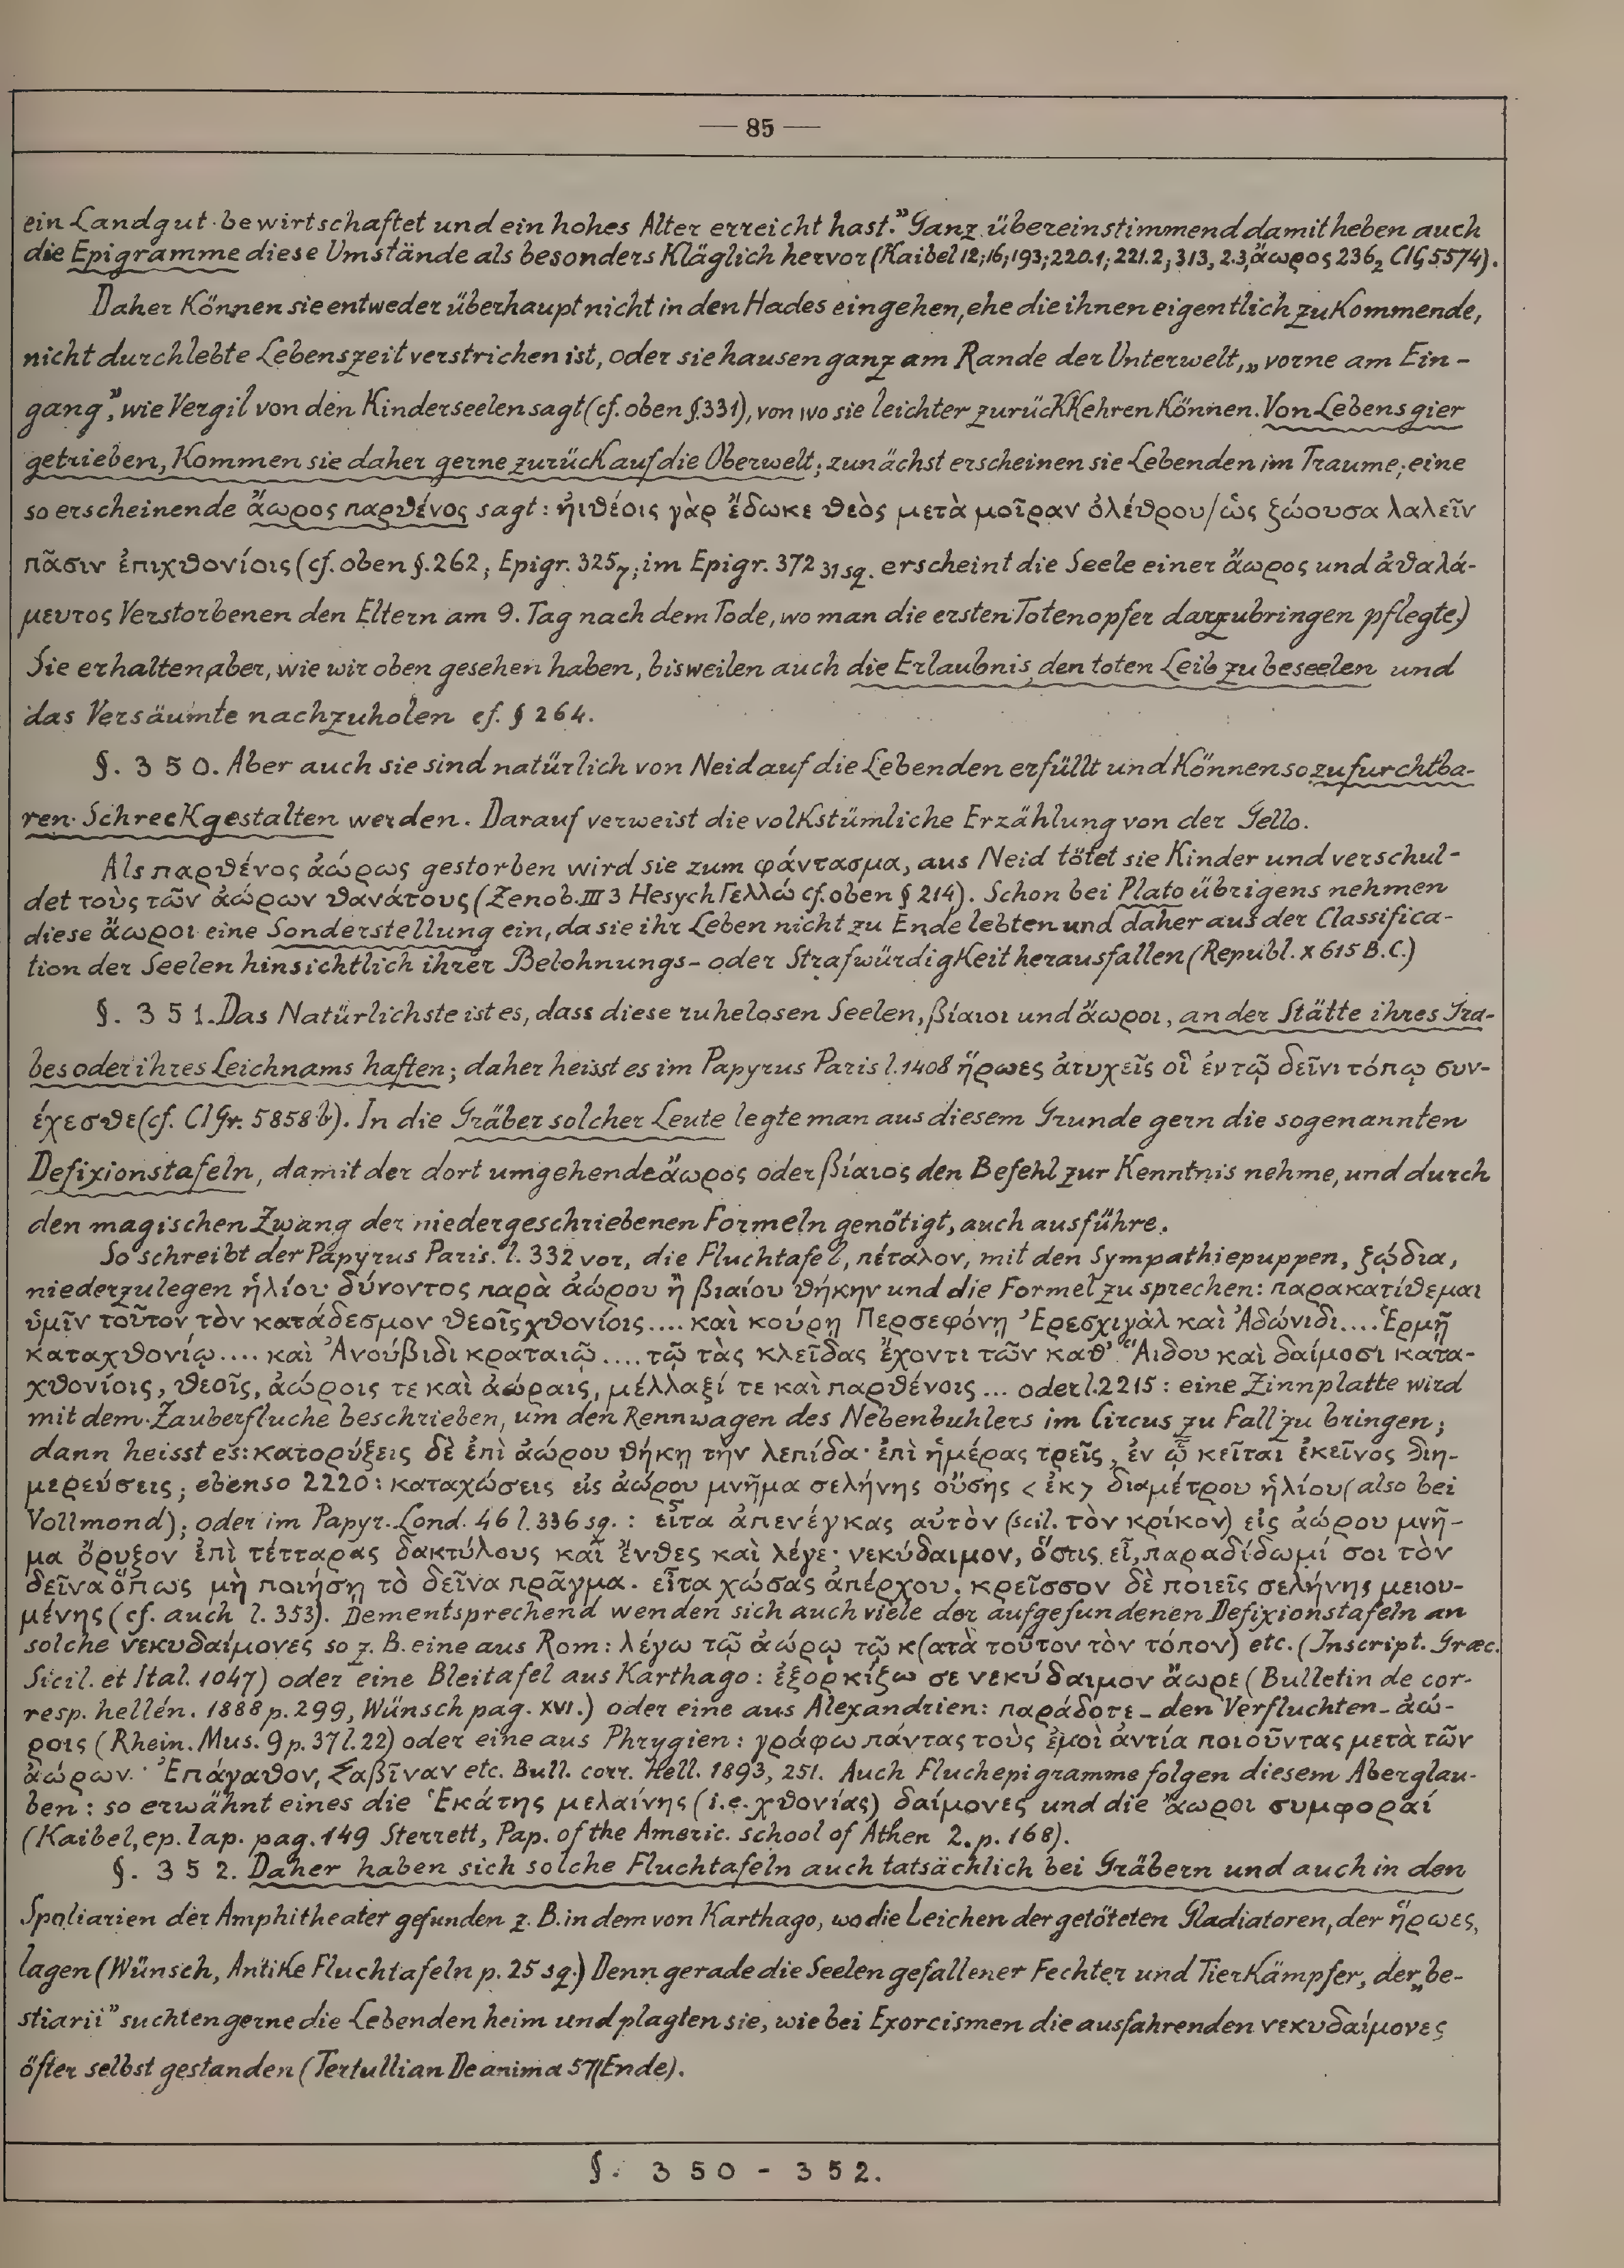 — 85 —
ein Landgut bewirtschaftet und ein hohes Alter erreicht hast.” Ganz übereinstimmend damit heben auch
die Epigramme diese Umstände als besonders Kläglich hervor (Kaibel 12; 16; 193; 220.1; 221.2; 313, 2.3, ἄωρος 236₂ CIG 5574).
Daher Können sie entweder überhaupt nicht in den Hades eingehen, ehe die ihnen eigentlich zuKommende,
nicht durchlebte Lebenszeit verstrichen ist, oder sie hausen ganz am Rande der Unterwelt, „vorne am Ein-
gang”, wie Vergil von den Kinderseelen sagt (cf. oben §.331), von wo sie leichter zurückKehren Können. Von Lebensgier
getrieben, Kommen sie daher gerne zurück auf die Oberwelt; zunächst erscheinen sie Lebenden im Traume; eine
so erscheinende ἄωρος παρθένος sagt: ἠιθέοις γὰρ ἔδωκε θεὸς μετὰ μοῖραν ὀλέθρου/ὡς ζώουσα λαλεῖν
πᾶσιν ἐπιχθονίοις (cf. oben §.262, Epigr. 325₇; im Epigr. 372 31sq. erscheint die Seele einer ἄωρος und ἀθαλά-
μευτος Verstorbenen den Eltern am 9. Tag nach dem Tode, wo man die ersten Totenopfer darzubringen pflegte.)
Sie erhalten aber, wie wir oben gesehen haben, bisweilen auch die Erlaubnis, den toten Leib zu beseelen und
das Versäumte nachzuholen cf. § 264.
§. 350. Aber auch sie sind natürlich von Neid auf die Lebenden erfüllt und Können so zu furchtba-
ren SchrecKgestalten werden. Darauf verweist die volKstümliche Erzählung von der Gello.
Als παρθένος ἀώρως gestorben wird sie zum φάντασμα, aus Neid tötet sie Kinder und verschul-
det τοὺς τῶν ἀώρων θανάτους (Zenob. III 3 Hesych Γελλώ cf. oben § 214). Schon bei Plato übrigens nehmen
diese ἄωροι eine Sonderstellung ein, da sie ihr Leben nicht zu Ende lebten und daher aus der Classifica-
tion der Seelen hinsichtlich ihrer Belohnungs- oder StrafwürdigKeit herausfallen (Republ. X 615 B.C.)
§. 351. Das Natürlichste ist es, dass diese ruhelosen Seelen, βίαιοι und ἄωροι, an der Stätte ihres Gra-
bes oder ihres Leichnams haften; daher heisst es im Papyrus Paris l. 1408 ἥρωες ἀτυχεῖς οἳ ἐν τῷ δεῖνι τόπῳ συν-
έχεσθε (cf. CIGr. 5858 b). In die Gräber solcher Leute legte man aus diesem Grunde gern die sogenannten
Defixionstafeln, damit der dort umgehende ἄωρος oder βίαιος den Befehl zur Kenntnis nehme, und durch
den magischen Zwang der niedergeschriebenen Formeln genötigt, auch ausführe.
So schreibt der Papyrus Paris. l. 332 vor, die Fluchtafel, πέταλον, mit den Sympathiepuppen, ζῴδια,
niederzulegen ἡλίου δύνοντος παρὰ ἀώρου ἢ βιαίου θήκην und die Formel zu sprechen: παρακατίθεμαι
ὑμῖν τοῦτον τὸν κατάδεσμον θεοῖς χθονίοις.... καὶ κούρῃ Περσεφόνῃ Ἐρεσχιγὰλ καὶ Ἀδώνιδι.... Ἑρμῇ
καταχθονίῳ.... καὶ Ἀνούβιδι κραταιῷ.... τῷ τὰς κλεῖδας ἔχοντι τῶν καθ’ Ἅιδου καὶ δαίμοσι κατα-
χθονίοις, θεοῖς, ἀώροις τε καὶ ἀώραις, μέλλαξί τε καὶ παρθένοις ... oder l. 2215: eine Zinnplatte wird
mit dem Zauberfluche beschrieben, um den Rennwagen des Nebenbuhlers im Circus zu Fall zu bringen;
dann heisst es: κατορύξεις δὲ ἐπὶ ἀώρου θήκῃ τὴν λεπίδα· ἐπὶ ἡμέρας τρεῖς, ἐν ᾧ κεῖται ἐκεῖνος διη-
μερεύσεις; ebenso 2220: καταχώσεις εἰς ἀώρου μνῆμα σελήνης οὔσης <ἐκ> διαμέτρου ἡλίου (also bei
Vollmond); oder im Papyr. Lond. 46 l. 336 sq.: εἶτα ἀπενέγκας αὐτὸν (scil. τὸν κρίκον) εἰς ἀώρου μνῆ-
μα ὄρυξον ἐπὶ τέτταρας δακτύλους καὶ ἔνθες καὶ λέγε· νεκύδαιμον, ὅστις εἶ, παραδίδωμί σοι τὸν
δεῖνα ὅπως μὴ ποιήσῃ τὸ δεῖνα πρᾶγμα. εἶτα χώσας ἀπέρχου. κρεῖσσον δὲ ποιεῖς σελήνης μειου-
μένης (cf. auch l. 353). Dementsprechend wenden sich auch viele der aufgefundenen Defixionstafeln an
solche νεκυδαίμονες so z. B. eine aus Rom: λέγω τῷ ἀώρῳ τῷ κ(ατὰ τοῦτον τὸν τόπον) etc. (Inscript. Græc.
Sicil. et Ital. 1047) oder eine Bleitafel aus Karthago: ἐξορκίζω σε νεκύδαιμον ἄωρε (Bulletin de cor-
resp. hellén. 1888 p. 299, Wünsch pag. XVI.) oder eine aus Alexandrien: παράδοτε - den Verfluchten - ἀώ-
ροις (Rhein. Mus. 9 p. 37 l. 22) oder eine aus Phrygien: γράφω πάντας τοὺς ἐμοὶ ἀντία ποιοῦντας μετὰ τῶν
ἀώρων· Ἐπάγαθον, Σαβῖναν etc. Bull. corr. Hell. 1893, 251. Auch Fluchepigramme folgen diesem Aberglau-
ben: so erwähnt eines die Ἑκάτης μελαίνης (i.e. χθονίας) δαίμονες und die ἄωροι συμφοραί
(Kaibel, ep. lap. pag. 149 Sterrett, Pap. of the Americ. school of Athen 2. p. 168).
§. 352. Daher haben sich solche Fluchtafeln auch tatsächlich bei Gräbern und auch in den
Spoliarien der Amphitheater gefunden z. B. in dem von Karthago, wo die Leichen der getöteten Gladiatoren, der ἥρωες,
lagen (Wünsch, Antike Fluchtafeln p. 25 sq.) Denn gerade die Seelen gefallener Fechter und TierKämpfer, der „be-
stiarii” suchten gerne die Lebenden heim und plagten sie, wie bei Exorcismen die ausfahrenden νεκυδαίμονες
öfter selbst gestanden (Tertullian De anima 57 (Ende).
§. 350 - 352.